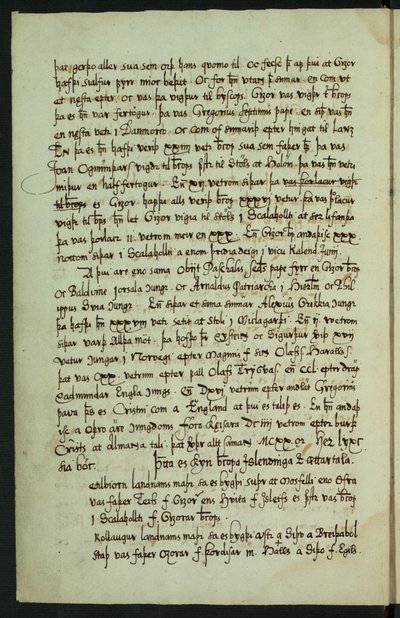 þat gerþo aller sua sem orþ hans quomo til. Oc fecsc þ ap þui at Gizor
hafþi sialfur fyrr mioc bepit. Or for hn utan þ sumar. en com vt
et nęsta epter. oc vas þa vigþur til byscops. Gizor vas vigþr t bcops
þa es hn var fertøgur. þa vas Gregorius septimus pape. en siþ vas hn
en nęsta vetr i Danmorc. Or com of sumariþ epter hingat til Lanz
En þa es hn hafþi verit xxiiij vetr bcop sua sem faþer h. þa vas
Joan Ogmundarson vigdr til bcops fstr til Stols at Holom. þa vas hn vetri
miþur en half fertøgur. En xij vetrom siþar þa vas þorlacur vigþr
til bcops es Gizor hafþi alls veriþ bcop xxxvj vetur. þa vas þlacur
vigþr til bps. hn let Gizor vigia til stols i Scalaholti at ser lifanda
þa vas þorlacr ij vetrom meir en xxx. En Gizor hn andaþisc xxx
nottom siþar i Scalaholti a enom þridia degi i vicu Kalend. Junij.
A þui are eno sama Obiit Paschalis secundus pape fyrr en Gizor bcop
Oc Baldvine Jorsala kungr. Oc Arnaldus Patriarcha i Hierlm Oc Phil
ippus Svia kungr. En siþar et sama sumar Alexius Grikkia kungr
þa hafþi hn xxxvij vetr setit at Stoli i Miclagarþi. En ij vetrom
siþar varþ Allda mot. þa hofþo þr Eysteinn oc Sigurþur veriþ xvij
vetur kungar i Norvegi epter Magnus f. sinn Olafs s. Haralds s.
þat vas cxx. vetrum epter fall Olafs Tryggvas. en ccl. eptr drap
Eadmundar Engla kungs. En Dxvj vetrom epter andlat Gregorius
pava þes es Cristni com a England at þui es taliþ es. En hn andaþ
isc a Oþro ári kungdoms Foco keisara Dc iiij vetrom epter burþ
Crists at almannatali. þat verþr allt saman Mc.xx. or. Her lycsc
sia bóc. Þetta es kyn bcopa Islendinga oc ættartala.
Cetilbiorn landnams maþr sa es bygþi suþr at Mosfelli eno Ofra
vas faþer Teits f. Gizor ens Hvita f. Isleifs es fstr vas bcop
i Scalaholti f. Gizorar bcops.
Rollaugur landnams maþr sa es bygþi austr a Siþo a Breiþabol
staþ vas faþer Ozorar f. þordisar m. Halls a Siþo f. Egils.